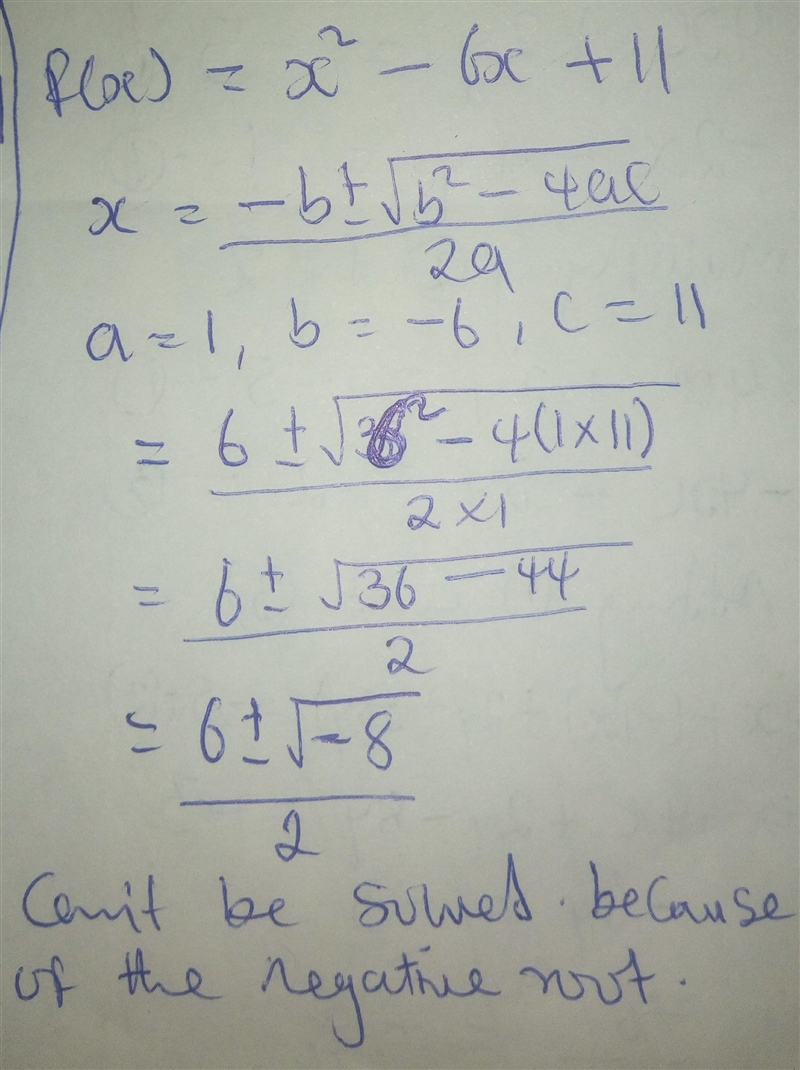 f(x) = x² - 6x + 11
x = -b ± √b² - 4ac / 2a
a = 1, b = -6, c = 11
= 6 ± √6² - 4(1×11) / 2×1
= 6 ± √36 - 44 / 2
= 6 ± √-8 / 2
Can't be solved. because
of the negative root.